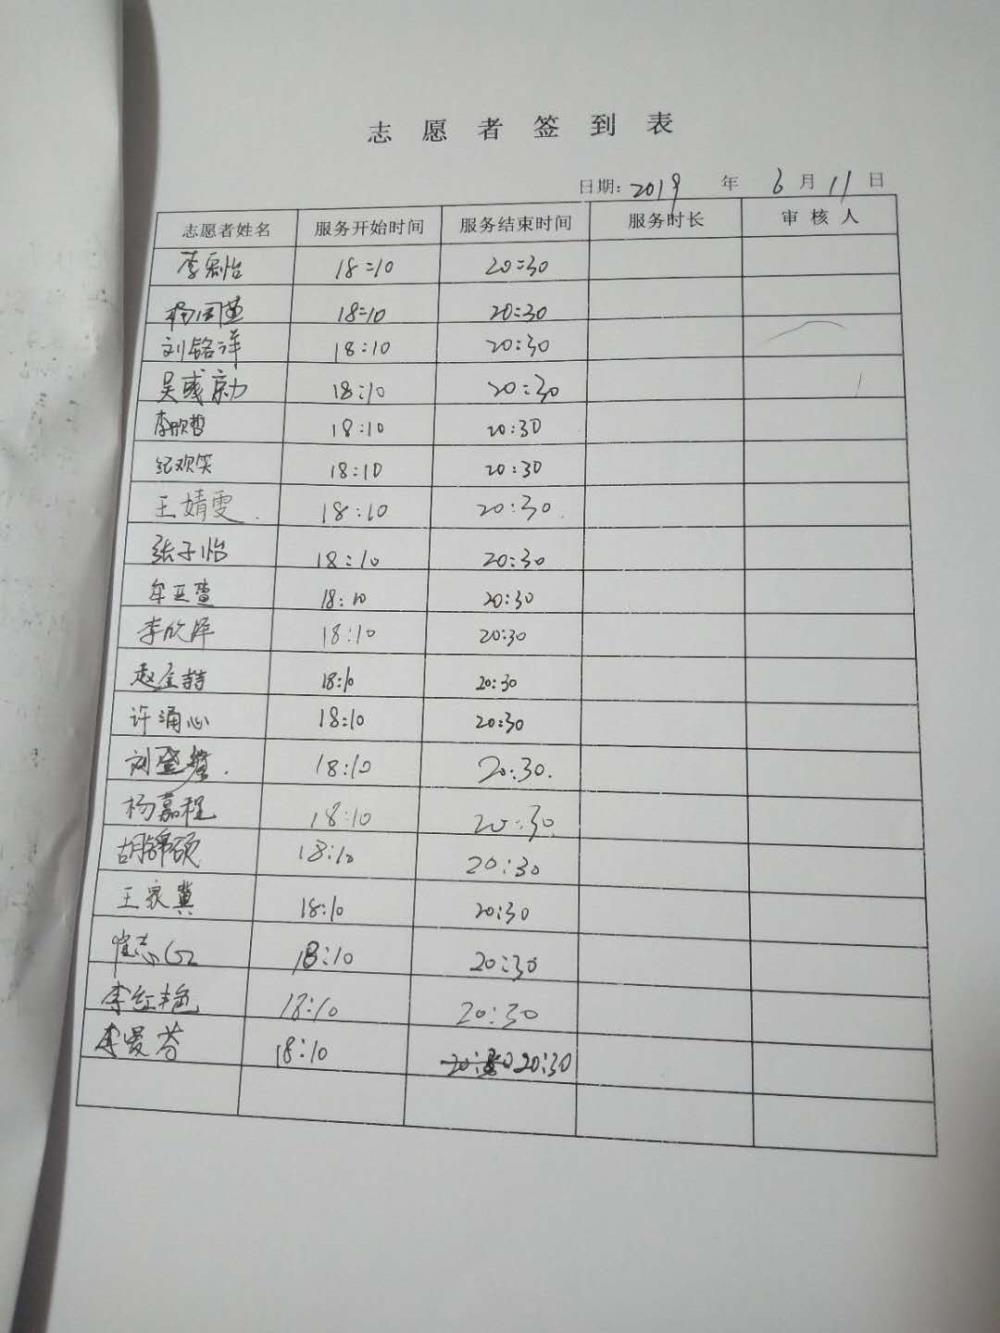 志愿者签到表
日期: 2019 年 6 月 11 日
志愿者姓名 服务开始时间 服务结束时间 服务时长 审核人
18:10 20:30
18:10 20:30
刘铭洋 18:10 20:30
吴彧勍 18:10 20:30
李欣哲 18:10 20:30
纪欢笑 18:10 20:30
王婧雯 18:10 20:30
张子怡 18:10 20:30
18:10 20:30
李欣泽 18:10 20:30
18:10 20:30
许涌心 18:10 20:30
18:10 20:30
杨嘉程 18:10 20:30
胡锦硕 18:10 20:30
王家冀 18:10 20:30
18:10 20:30
李红艳 18:10 20:30
18:10 20:30